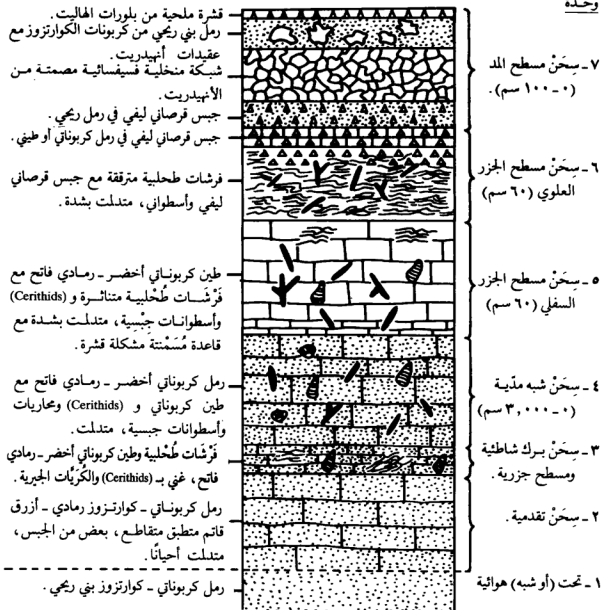 وحدة
٧ ـ سِحَنْ مسطح المد
(٠ ـ ١٠٠ سم).
٦ ـ سِحَنْ مسطح الجزر
العلوي (٦٠ سم)
٥ ـ سِحَنْ مسطح الجزر
السفلي (٦٠ سم)
٤ ـ سِحَنْ شبه مدّيـة
(٠ ـ ٣,٠٠٠ سم)
٣ ـ سِحَنْ بـرك شاطئية
ومسطح جزرية.
٢ ـ سِحَنْ تقدمية.
١ ـ تحت (أو شبه) هوائية
قشرة ملحية من بلورات الهاليت.
رمل بني ريحي من كربونات الكوارتزوز مع
عقيدات أنهيدريت.
شبكة منخلية فسيفسائية مصمتة من
الأنهيدريت.
جبس قرصاني ليفي في رمل ريحي.
جبس قرصاني ليفي في رمل كربوناتي أو طيني.
فرشات طحلبية مترققة مع جبس قرصاني
ليفي وأسطواني، متدلمت بشدة.
طين كربوناتي أخضر ـ رمادي فاتح مع
فَرْشَـات طُحْلبيـة متناثـرة و (Cerithids)
وأسطوانـات جبْسية، متدلمت بشدة مع
قاعدة مُسَمْنتة مشكلة قشرة.
رمل كربوناتي أخضر ـ رمادي فاتح مع
طين كربوناتي و (Cerithids) ومحاريات
وأسطوانات جبسية، متدلمت.
فَرْشَات طُحْلبية وطين كربوناتي أخضر ـ رمادي
فاتح، غني بـ (Cerithids) والكُرَيَّات الجيرية.
رمل كربوناتي ـ كوارتـزوز رمادي ـ أزرق
قاتم متطبق متقاطـع، بعض من الجبس،
متدلمت أحيانًا.
رمل كربوناتي ـ كوارتزوز بني ريحي.